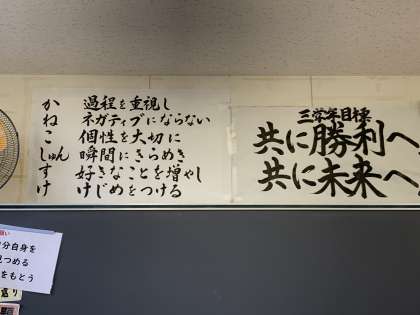 か 過程を重視し
ね ネガティブにならない
こ 個性を大切に
しゅん 瞬間にきらめき
す 好きなことを増やし
け けじめをつける
三学年目標
共に勝利へ
共に未来へ
分自身を
見つめる
をもとう